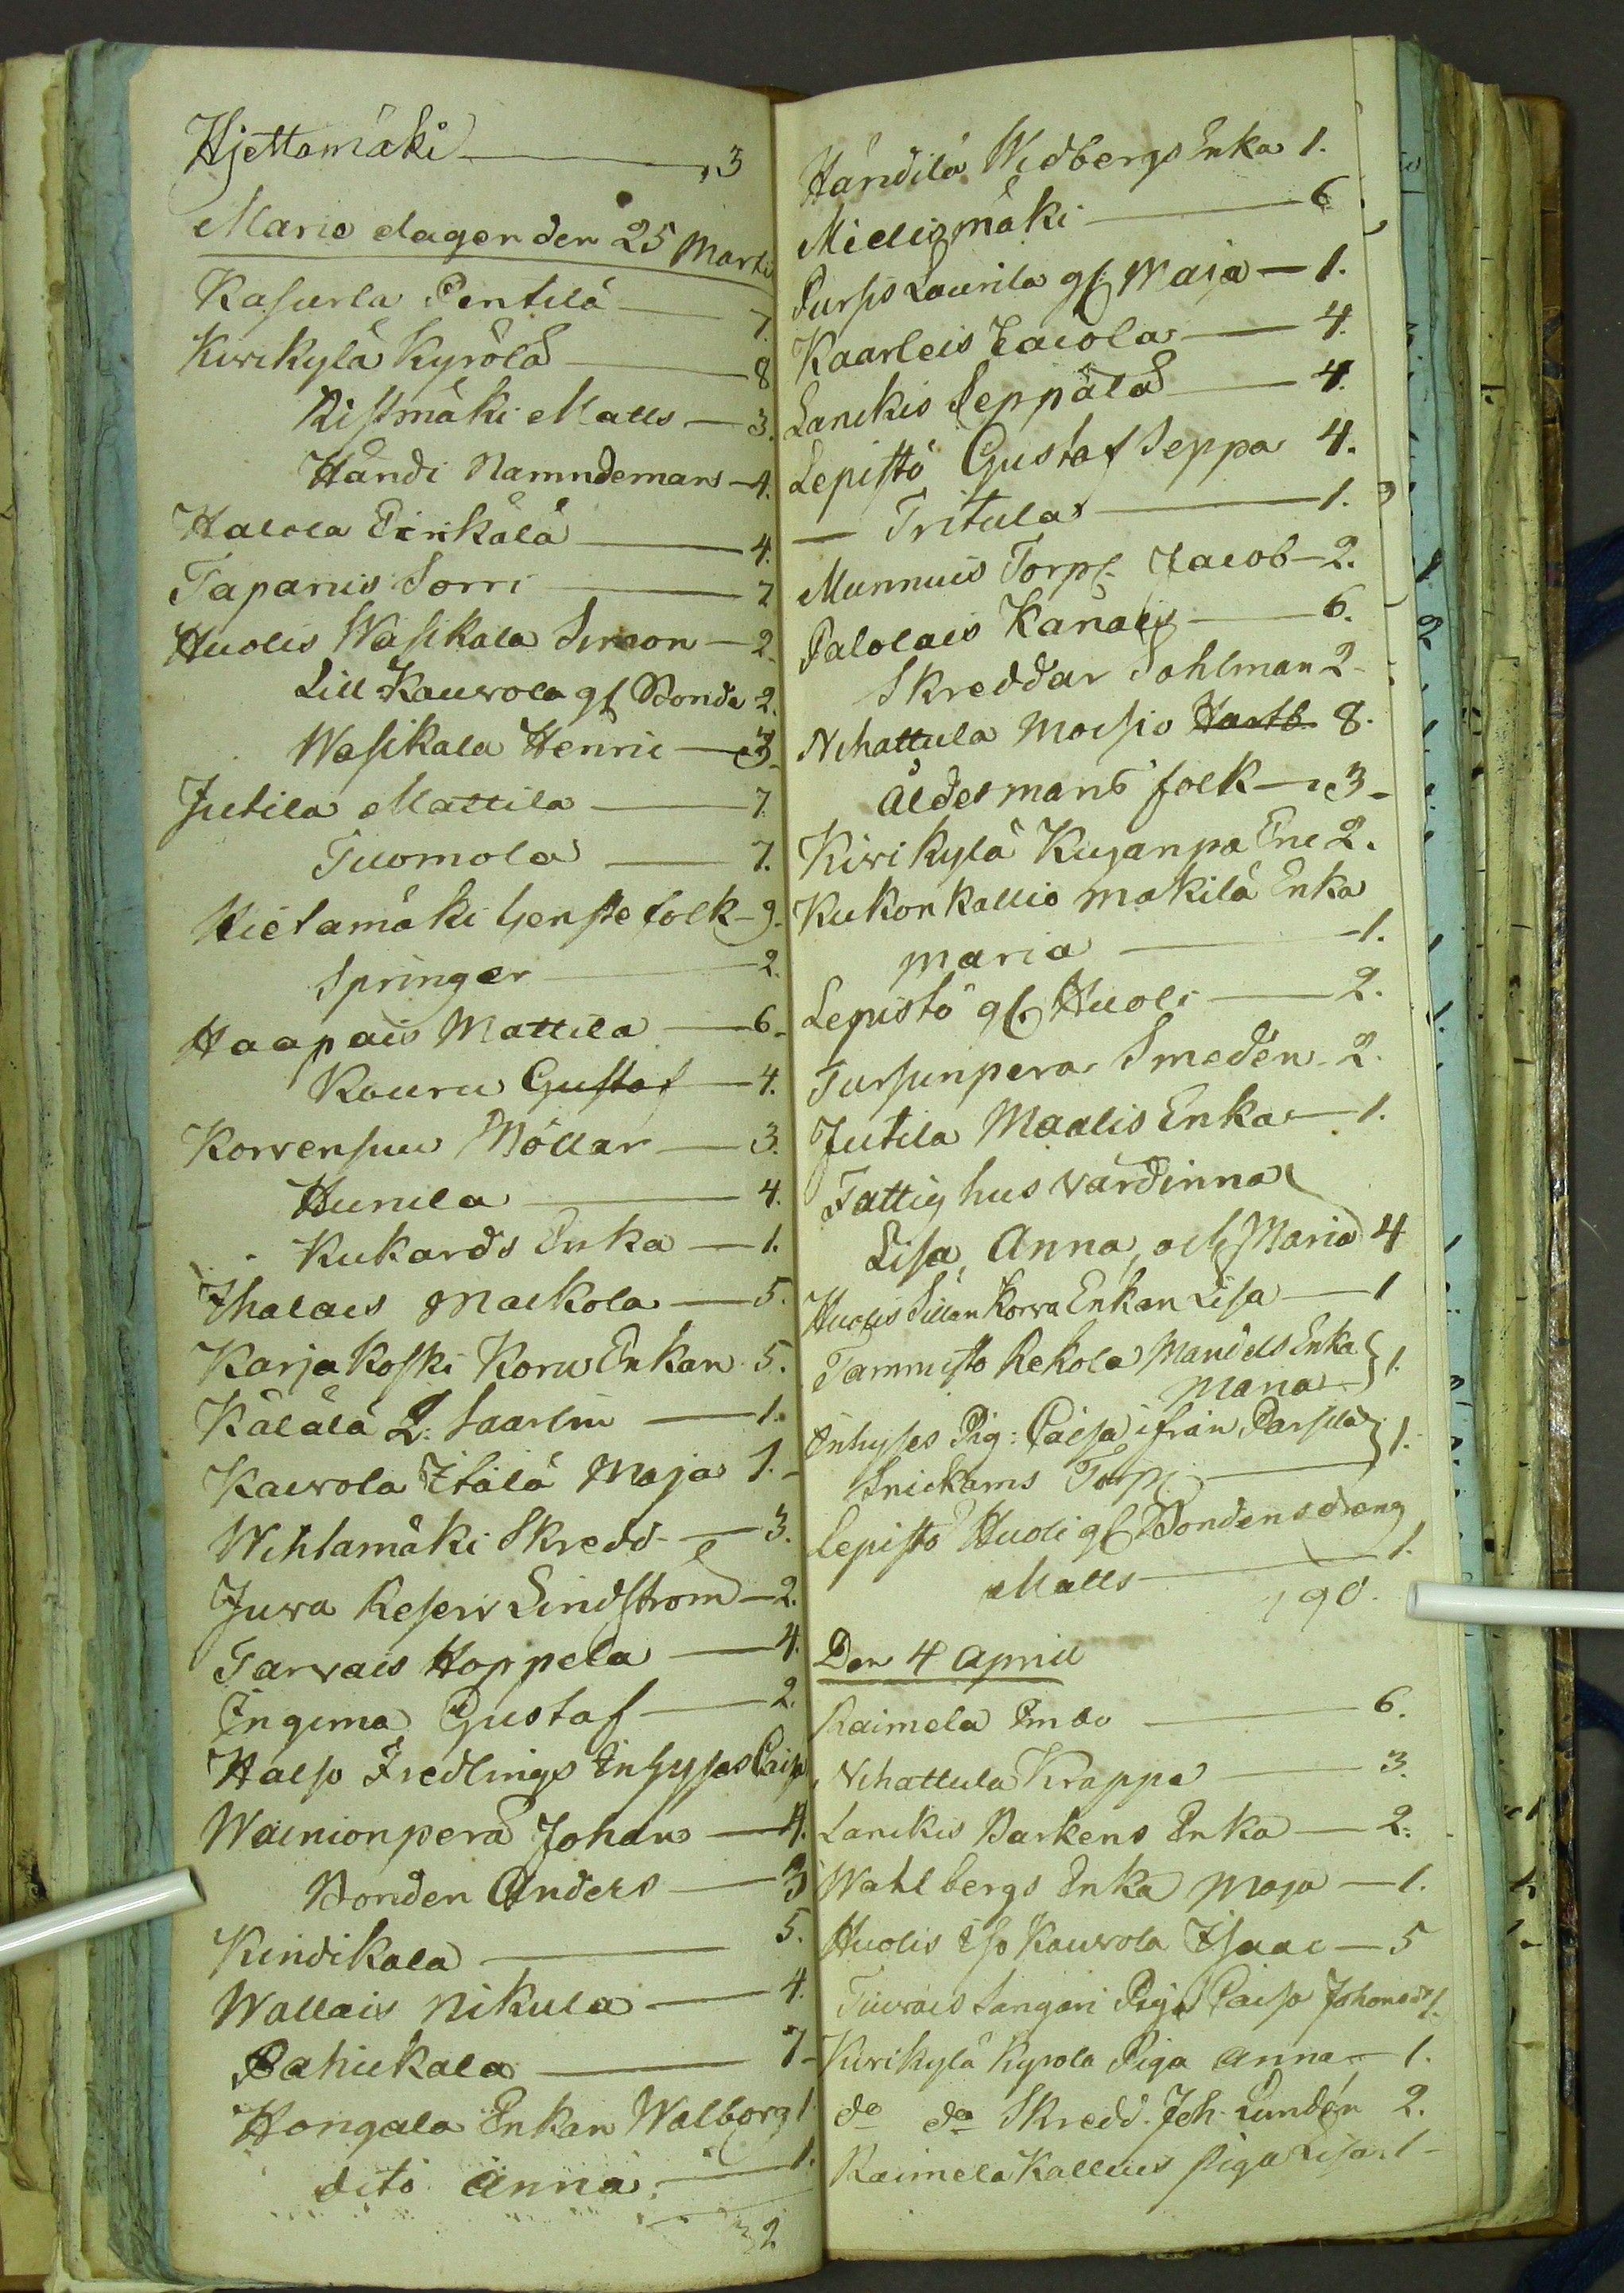 Hjettamäki — 3
Marie dagen den 25 Marti
Kasurla Pentilä — 7.
Kirikylä Kyrölä — 8
Ristmäki Matts — 3.
Händi Namndemans — 4.
Halola Pirikälä — 4.
Tapanis Sorri — 7
Huolis Wasikala Simeon — 2.
Lill Kauvola gl Bonde 2.
Wasikala Henric — 3.
Jutila Mattila — 7.
Tuomola — 7.
Hietamäki Genste folk — 9.
Springer — 2.
Haapais Mattila — 6.
Kouru Gustaf — 4.
Korvensuu Möllar — 3.
Hunila — 4.
Kukards Enka — 1.
Ihalais Maikola — 5.
Karjakoski Koru Enkan 5.
Kälälä L. Saarlm — 1.
Kauvola Itälä Maja 1.
Wihlamäki Skredd — 3.
Juva Reserv Lindstrom — 2.
Tarvais Hoppela — 4.
Ingima Gustaf — 2.
Halso Fredlings Inhyses Caisa
Wainionpera Johan — 4.
Bonden Anders — 3
Kindikala — 5.
Wallais Nikula — 4.
Pahikkala — 7
Hongala Enkan Walborg 1.
dito Anna — 1.
Händilä Widbergs Enka 1.
Mieligmäki — 6
Pursis Laurila gl. Maja — 1.
Kaarleis Eaiola — 4.
Lanckis Seppälä — 4.
Lepistö Gustaf Seppa 4.
— Tritula — 1.
Munnuis Torp. Jacob — 2.
Palolais Känäis — 6.
Skreddar Sohlman 2
Nihattula Moisio Hartb. 8.
Åldermans folk — 3
Kirikylä Kujanpa Enc 2.
Kukonkallio makilä Enka
Maria — 1.
Lepistö gl. Huoli — 2.
Tursunpera Smeden 2.
Jutila Maalis Enka — 1.
Fattighus värdinna
Lisa, Anna, och Maria 4
Huolis Sillan Korva Enkan Lisa — 1
Tammisto Rekola Mandels Enka
Maria } 1.
Inhyses Pig: Caisa ifrån Parsila
Snickams Torp } 1.
Lepistö Huoli gl Bondens dräng
Matts — 1.
190.
Den 4 April
Raimela Imbo — 6.
Nihattula Krappe — 3.
Lanckis Barkens Enka — 2.
Wahlbergs Enka Maja — 1.
Huolis Iso Kauvola Isaac — 5
Tiuvais Sangari Piga Caisa Johansd 1.
Kirikylä Kyrola Piga Anna — 1.
do do Skredd. Joh. Lundén 2.
Raimela Kallius Piga Lisa 1